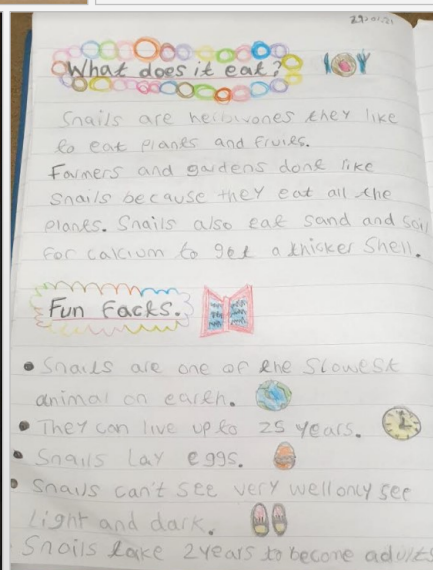 What does it eat?
Snails are herbivores they like
to eat plants and fruits.
Farmers and gardens dont like
snails because they eat all the
plants. Snails also eat sand and soil
for calcium to get a thicker shell.
Fun Facts.
Snails are one of the slowest
animal on earth.
They can live up to 25 years.
Snails lay eggs.
Snails can't see very well only see
light and dark.
Snails take 2 years to become adults